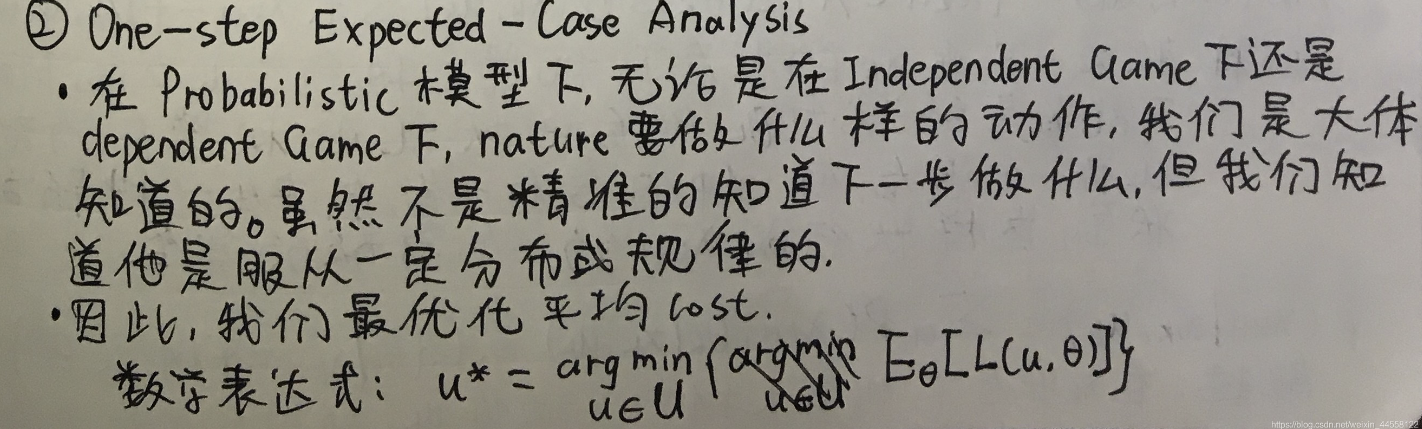 ② One-step Expected-Case Analysis
· 在 Probabilistic 模型下, 无论是在 Independent Game 下还是
dependent Game 下, nature 要做什么样的动作, 我们是大体
知道的。虽然不是精准的知道下一步做什么, 但我们知
道他是服从一定分布或规律的.
· 因此, 我们最优化平均 cost.
数学表达式: u* = arg min {argmin E_θ[L(u,θ)]}
u∈U u∈U
https://blog.csdn.net/weixin_44558122